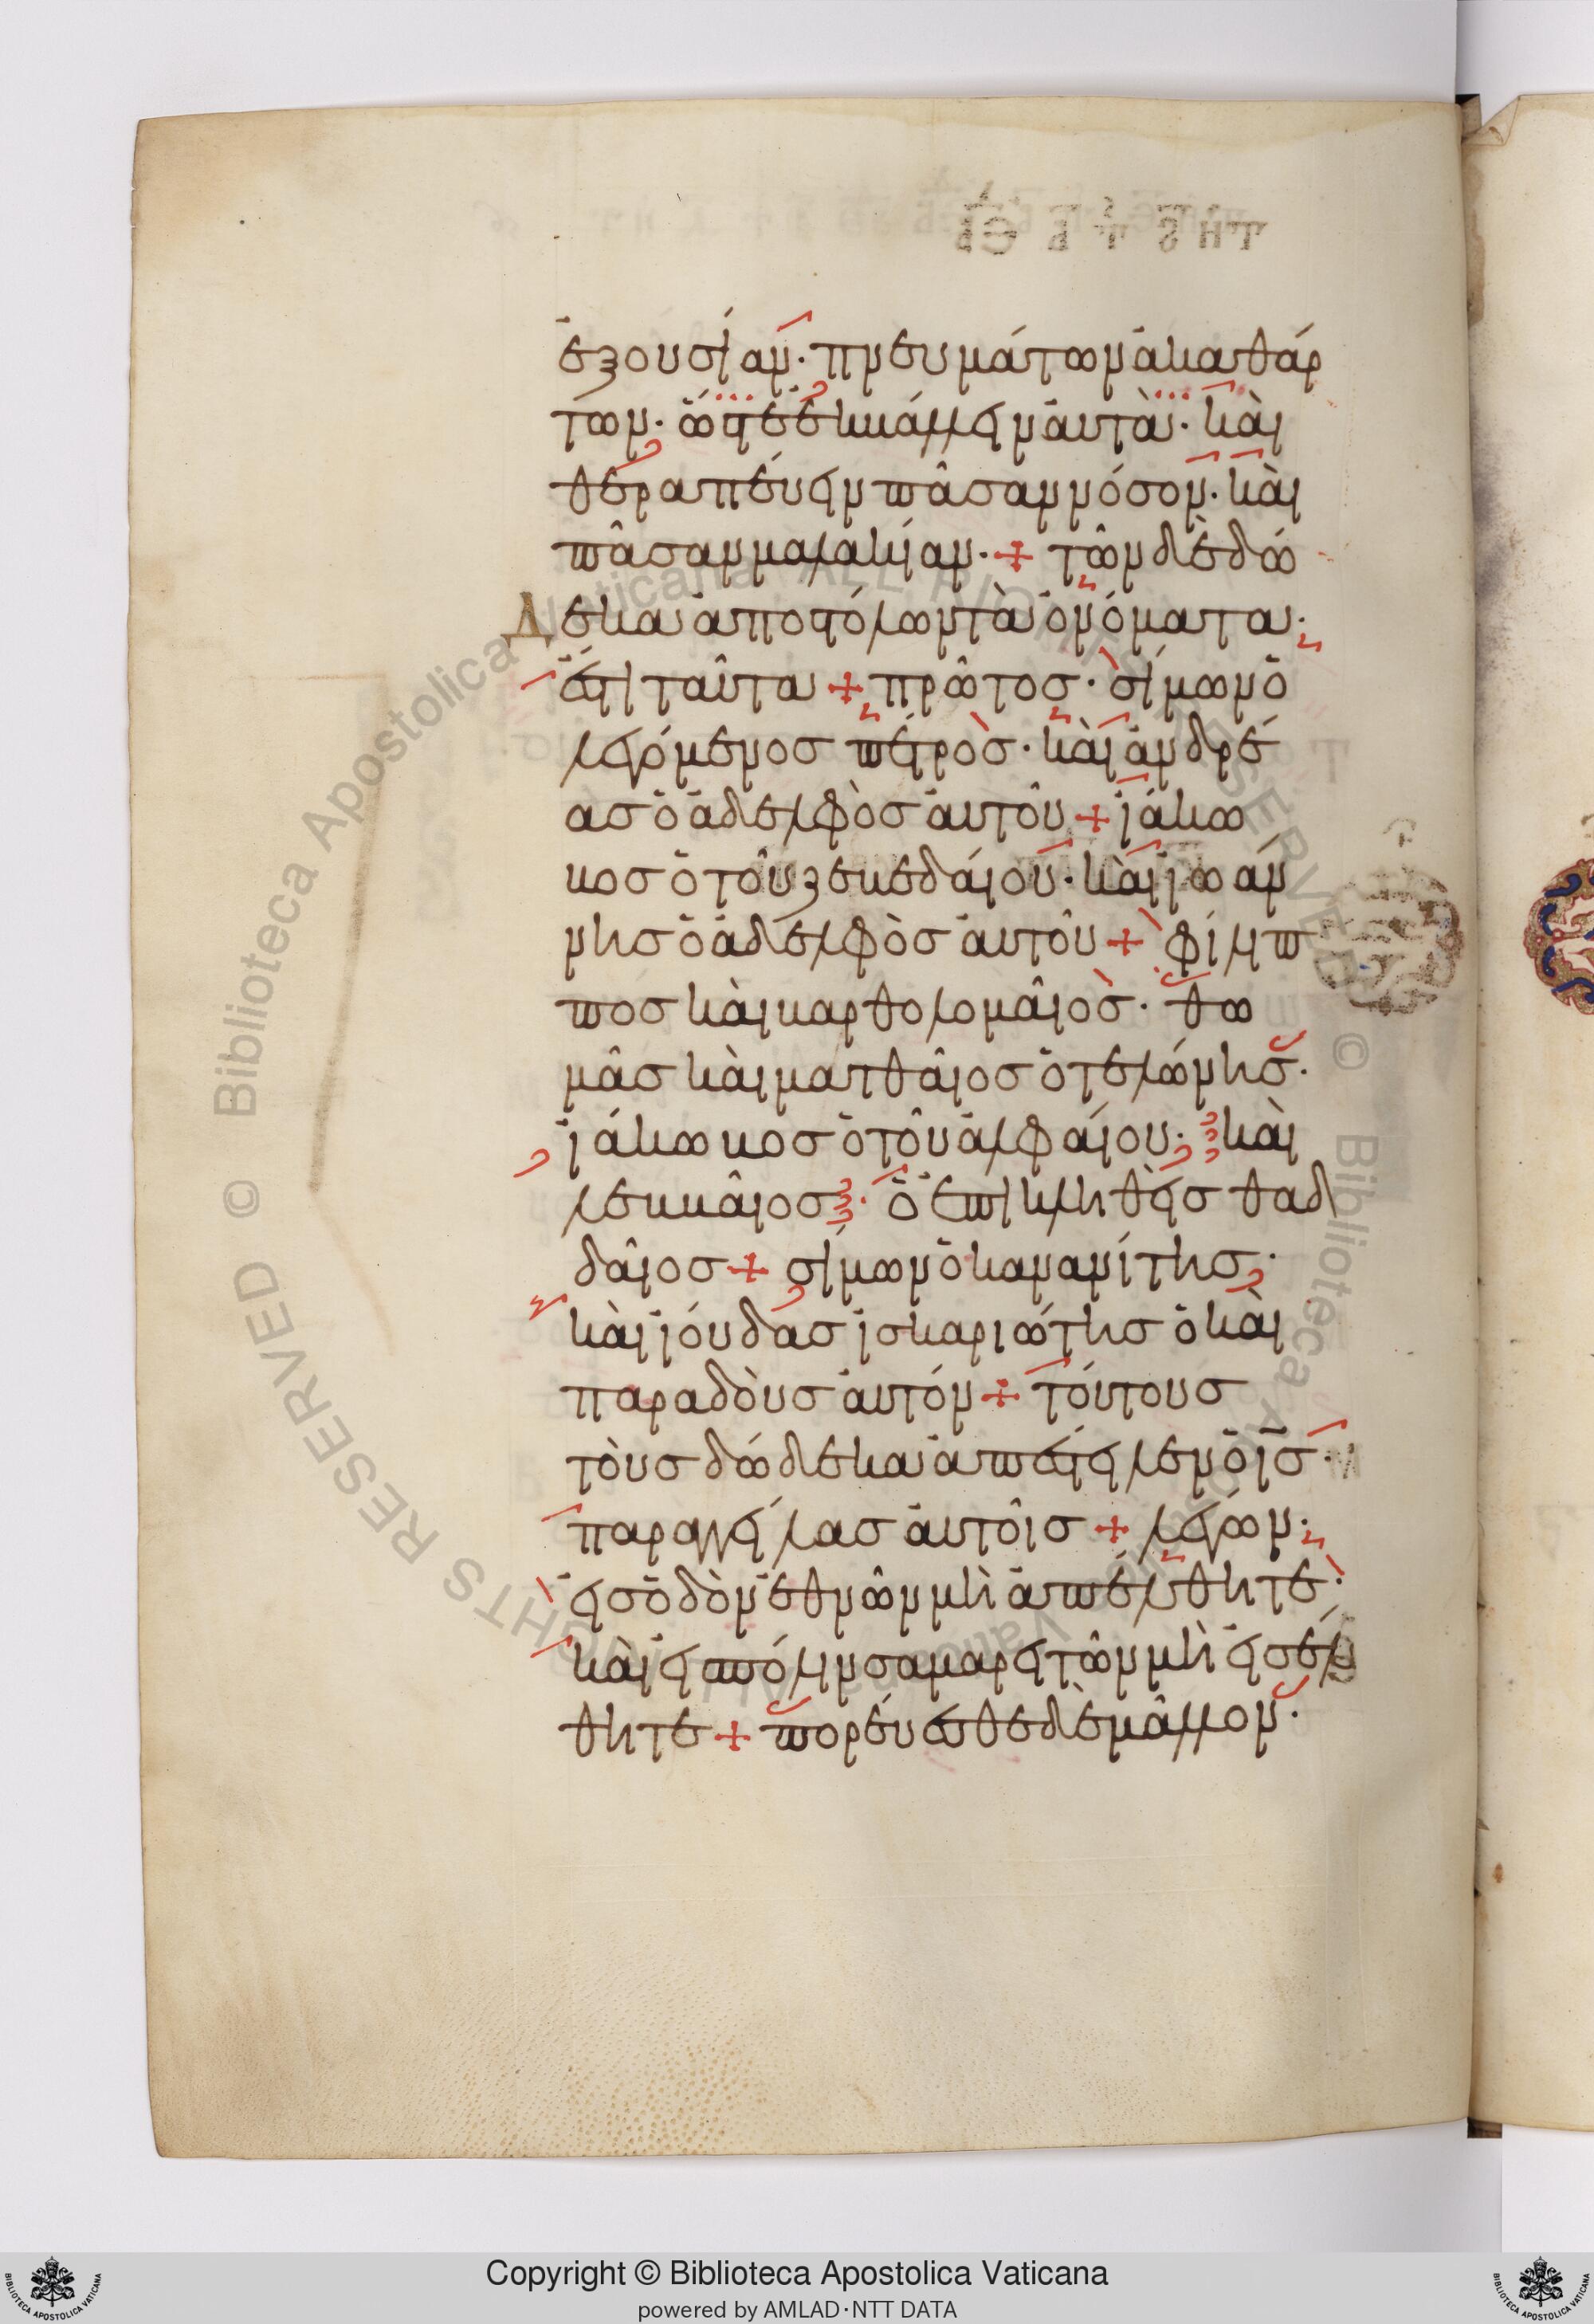 ἐξουσίαν· πνευμάτων ἀκαθάρ
των· ὥστε ἐκβάλλειν αὐτὰ· καὶ
θεραπεύειν πᾶσαν νόσον· καὶ
πᾶσαν μαλακίαν· + τῶν δὲ δώ
δεκα ἀποστόλων τὰ ὀνόματα·
ἐστὶ ταῦτα + πρῶτος· σίμων ὁ
λεγόμενος πέτρος· καὶ ἀνδρέ
ας ὁ ἀδελφὸς αὐτοῦ + ἰάκω
βος ὁ τοῦ ζεβεδαίου· καὶ ἰωάν
νης ὁ ἀδελφὸς αὐτοῦ + φίλιπ
πος καὶ βαρθολομαῖος· θω
μᾶς καὶ ματθαῖος ὁ τελώνης·
ἰάκωβος ὁ τοῦ ἀλφαίου· καὶ
λεββαῖος· ὁ ἐπικληθεὶς θαδ
δαῖος + σίμων ὁ κανανίτης·
καὶ ἰούδας ἰσκαριώτης ὁ καὶ
παραδοὺς αὐτόν + τούτους
τοὺς δώδεκα ἀπέστειλεν ὁ ἰς·
παραγγείλας αὐτοῖς + λέγων·
εἰς ὁδὸν ἐθνῶν μὴ ἀπέλθητε·
καὶ εἰς πόλιν σαμαρειτῶν μὴ εἰσέλ
θητε + πορεύεσθε δὲ μᾶλλον·
Copyright © Biblioteca Apostolica Vaticana
powered by AMLAD·NTT DATA